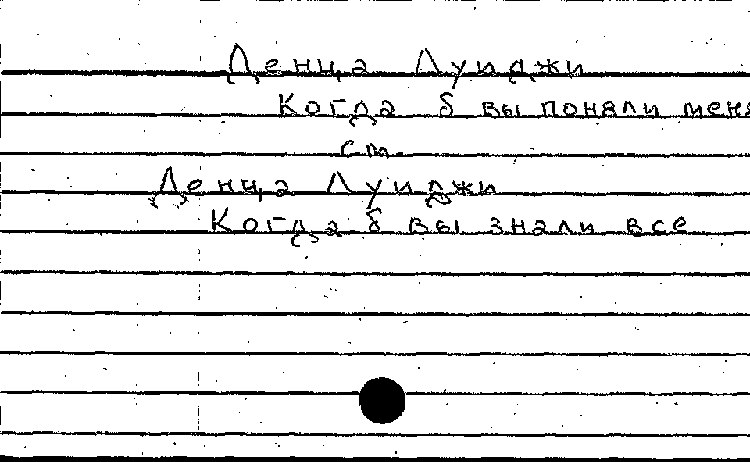 Денца Луиджи
Когда б вы поняли меня
см.
Денца Луиджи
Когда б вы знали все